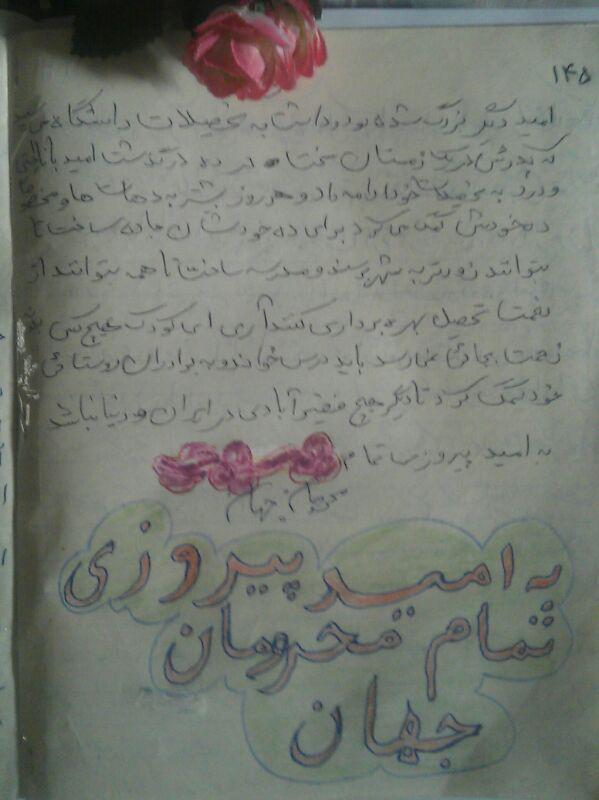 ۱۴۵
امید دیگر بزرگ شده بود و داشت به تحصیلات دانشگاه
که پدرش در یک زمستان سخت در ده درگذشت امید با
و درد به تحصیلات خود ادامه داد و هر روز بیشتر به دهات ها و مخصوصا
ده خودش کمک می کرد برای ده خودشان جاده ساخت تا
بتوانند زودتر به شهر برسند و مدرسه ساخت تا همه بتوانند از
نعمت تحصیل بهره برداری کنند آری ای کودک هیچ کس
زحمت بجائی نمیرسد باید درس خواند و به برادران روستائی
خود کمک کرد تا دیگر هیچ فقیر آبادی در ایران و دنیا نباشد
به امید پیروزی تمام
محرومان جهان
به امید پیروزی
تمام محرومان
جهان